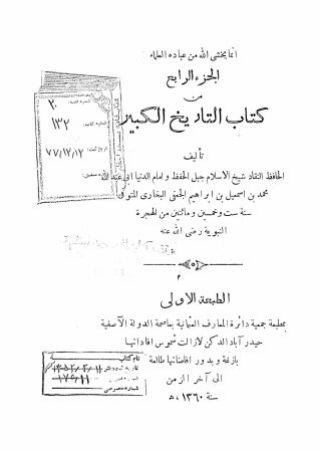 انما يخشى الله من عباده العلماء
الجزء الرابع
من
كتاب التاريخ الكبير
تأليف
الحافظ النقاد شيخ الاسلام جبل الحفظ و امام الدنيا ابى عبد الله
محمد بن اسمعيل بن ابراهيم الجعفى البخارى المتوفى
سنة ست وخمسين ومائتين من الهجرة
النبوية رضى الله عنه
الطبعة الاولى
بمطبعة جمعية دائرة المعارف العثمانية بعاصمة الدولة الآصفية
حيدرآباد الدكن لا زالت شموس افاداتها
بازغة وبدور افاضاتها طالعة
الى آخر الزمن
سنة ١٣٦٠ ھ
٢٠
١٣٢
٧٧/١٢/١٢
نام كتاب
شماره عمومى